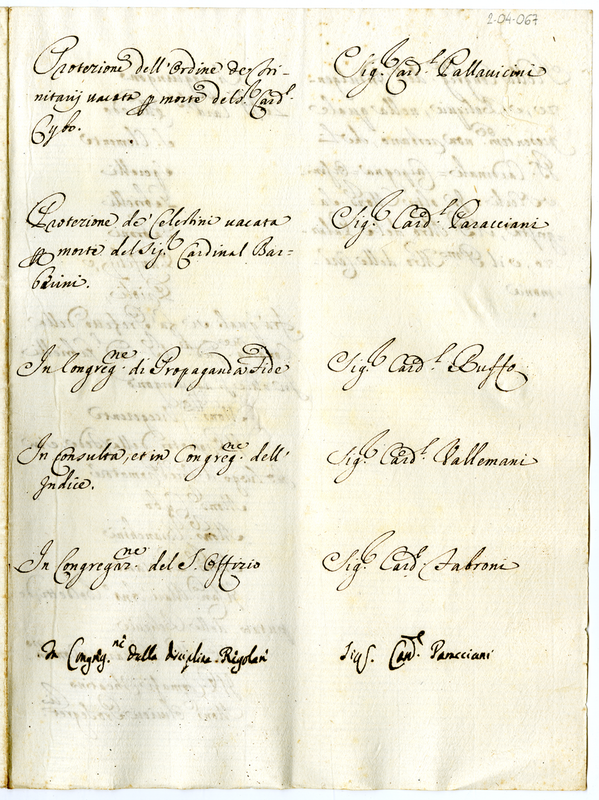 2-04-067
Protezione dell'Ordine de Tri-
nitarij vacata p morte del S.r Card.l
Cybo.
Sig.r Card.l Pallavicini
Protezione de' Celestini vacata
p morte del Sig.r Cardinal Bar-
berini.
Sig.r Card.l Paracciani
In Congreg.ne di Propaganda Fide
Sig.r Card.l Buffo
In Consulta, et in Congreg.ne dell'
Indice.
Sig.r Card.l Vallemani
In Congregaz.ne del S. Offizio
Sig.r Card.l Fabroni
In Congreg.ne della disciplina Regolari
Sig.r Card.l Paracciani